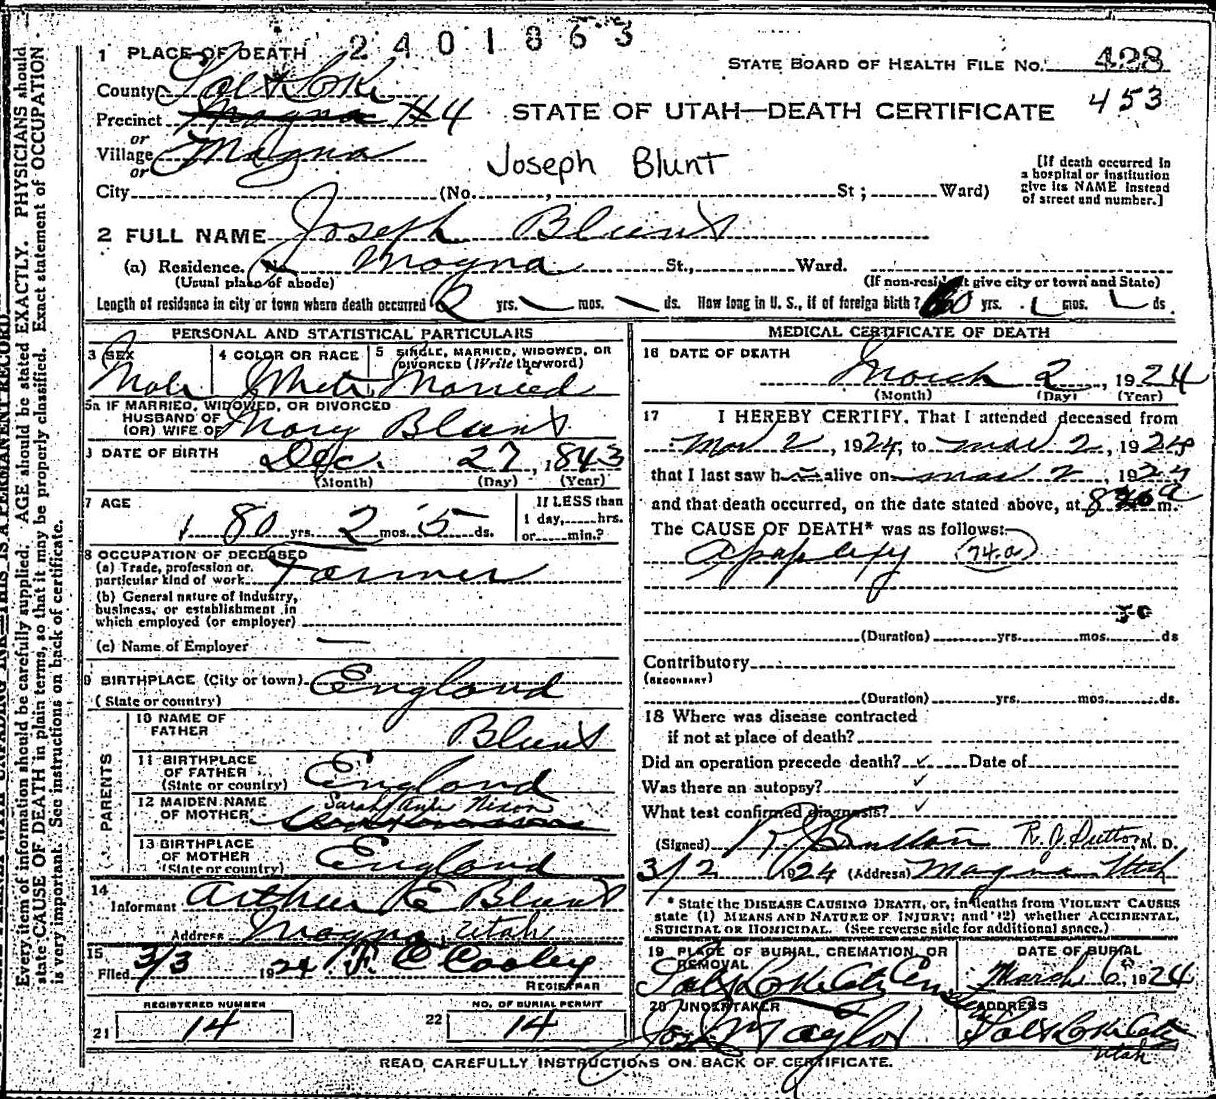 2401863
1 PLACE OF DEATH
STATE BOARD OF HEALTH FILE No. 428
453
County Salt Lake
STATE OF UTAH—DEATH CERTIFICATE
Precinct Magna #4
or
Village Magna
or
Joseph Blunt
[If death occurred in
a hospital or institution
give its NAME instead
of street and number.]
City (No. , St; Ward)
2 FULL NAME Joseph Blunt
(a) Residence. No. Magna St., Ward.
(Usual place of abode) (If non-resident give city or town and State)
Length of residence in city or town where death occurred yrs. mos. ds. How long in U. S., if of foreign birth? yrs. mos. ds.
PERSONAL AND STATISTICAL PARTICULARS
3 SEX 4 COLOR OR RACE 5 SINGLE, MARRIED, WIDOWED, OR
DIVORCED (Write the word)
Male White Married
5a IF MARRIED, WIDOWED, OR DIVORCED
HUSBAND OF
(OR) WIFE OF Mary Blunt
DATE OF BIRTH Dec. 27, 1843
(Month) (Day) (Year)
7 AGE
80 yrs. 2 mos. 5 ds.
If LESS than
1 day, hrs.
or min.?
8 OCCUPATION OF DECEASED
(a) Trade, profession or
particular kind of work Farmer
(b) General nature of industry,
business, or establishment in
which employed (or employer)
(c) Name of Employer
9 BIRTHPLACE (City or town) England
(State or country)
PARENTS
10 NAME OF
FATHER Blunt
11 BIRTHPLACE
OF FATHER England
(State or country)
12 MAIDEN NAME
OF MOTHER Sarah Ann Nixon
13 BIRTHPLACE
OF MOTHER England
(State or country)
14
Informant Arthur E Blunt
Address Magna, Utah
15
Filed 3/3 1924 F. C Cooley
REGISTRAR
REGISTERED NUMBER NO. OF BURIAL PERMIT
21 14 22 14
MEDICAL CERTIFICATE OF DEATH
16 DATE OF DEATH
March 2, 1924
(Month) (Day) (Year)
17 I HEREBY CERTIFY, That I attended deceased from
Mar 2, 1924, to Mar 2, 1924
that I last saw h alive on Mar 2 1924
and that death occurred, on the date stated above, at 8 a m.
The CAUSE OF DEATH* was as follows:
Apoplexy (74.a)
(Duration) yrs. mos. ds
Contributory
(SECONDARY)
(Duration) yrs. mos. ds.
18 Where was disease contracted
if not at place of death?
Did an operation precede death? ✓ Date of
Was there an autopsy? ✓
What test confirmed diagnosis? ✓
(Signed) R. J. Dutton M. D.
3/2 1924 (Address) Magna Utah
* State the DISEASE CAUSING DEATH, or, in deaths from VIOLENT CAUSES
state (1) MEANS AND NATURE OF INJURY; and (2) whether ACCIDENTAL,
SUICIDAL OR HOMICIDAL. (See reverse side for additional space.)
19 PLACE OF BURIAL, CREMATION, OR
REMOVAL
DATE OF BURIAL
Salt Lake City Cem March 6, 1924
20 UNDERTAKER ADDRESS
Taylor Salt Lake City
Utah
READ CAREFULLY INSTRUCTIONS ON BACK OF CERTIFICATE.
Every item of information should be carefully supplied. AGE should be stated EXACTLY. PHYSICIANS should
state CAUSE OF DEATH in plain terms, so that it may be properly classified. Exact statement of OCCUPATION
is very important. See instructions on back of certificate.